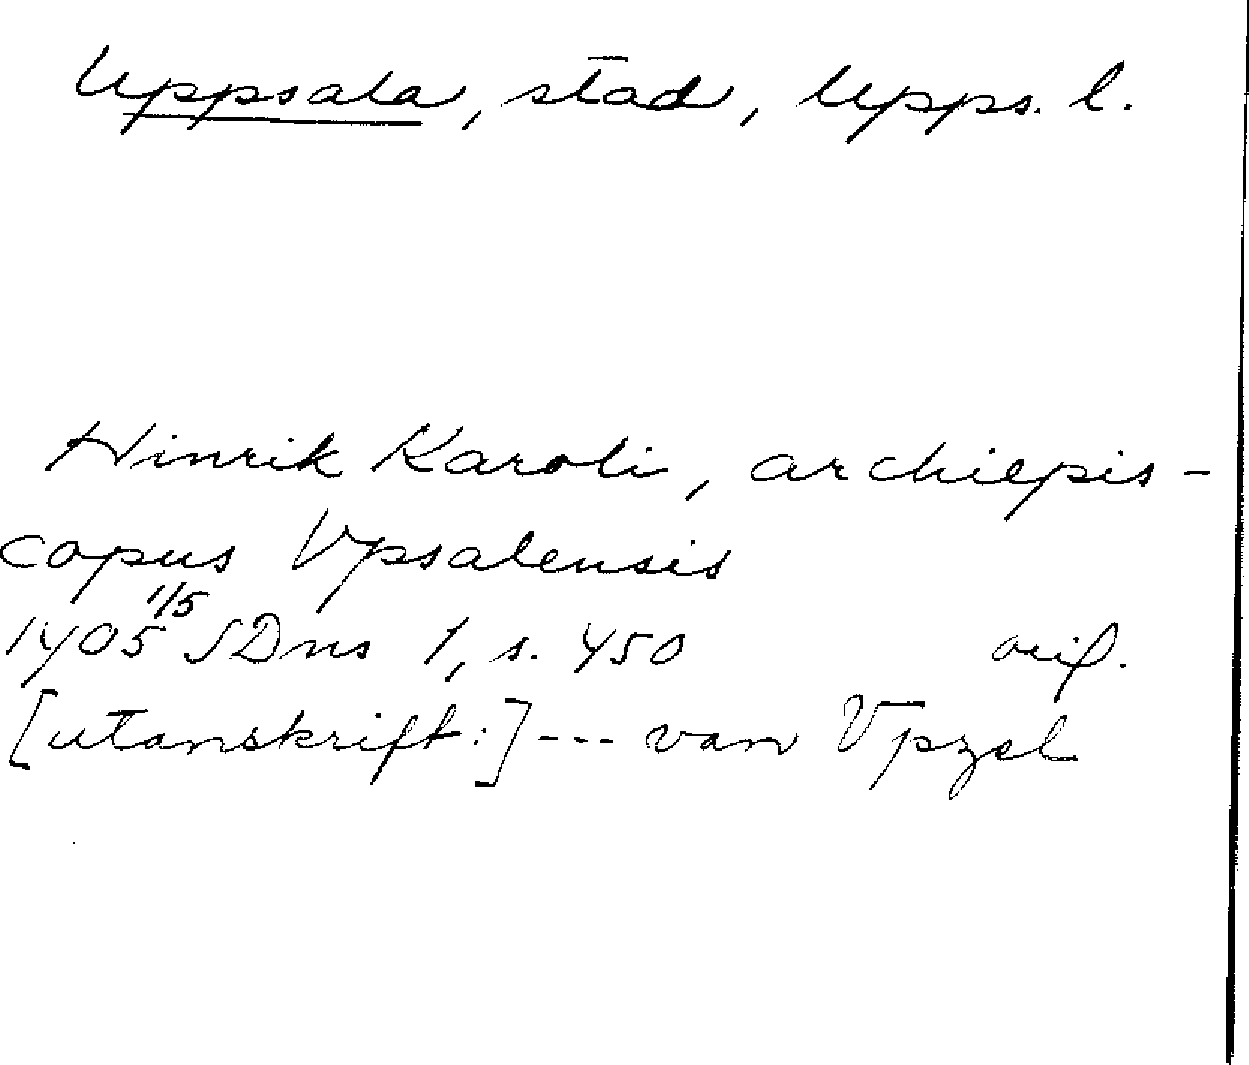 Uppsala, stad, Upps. l.
Hinrik Karoli, archiepis-
copus Vpsalensis
1405 1/5 SDns 1, s. 450 orig.
[utanskrift:] --- van Vpzsl